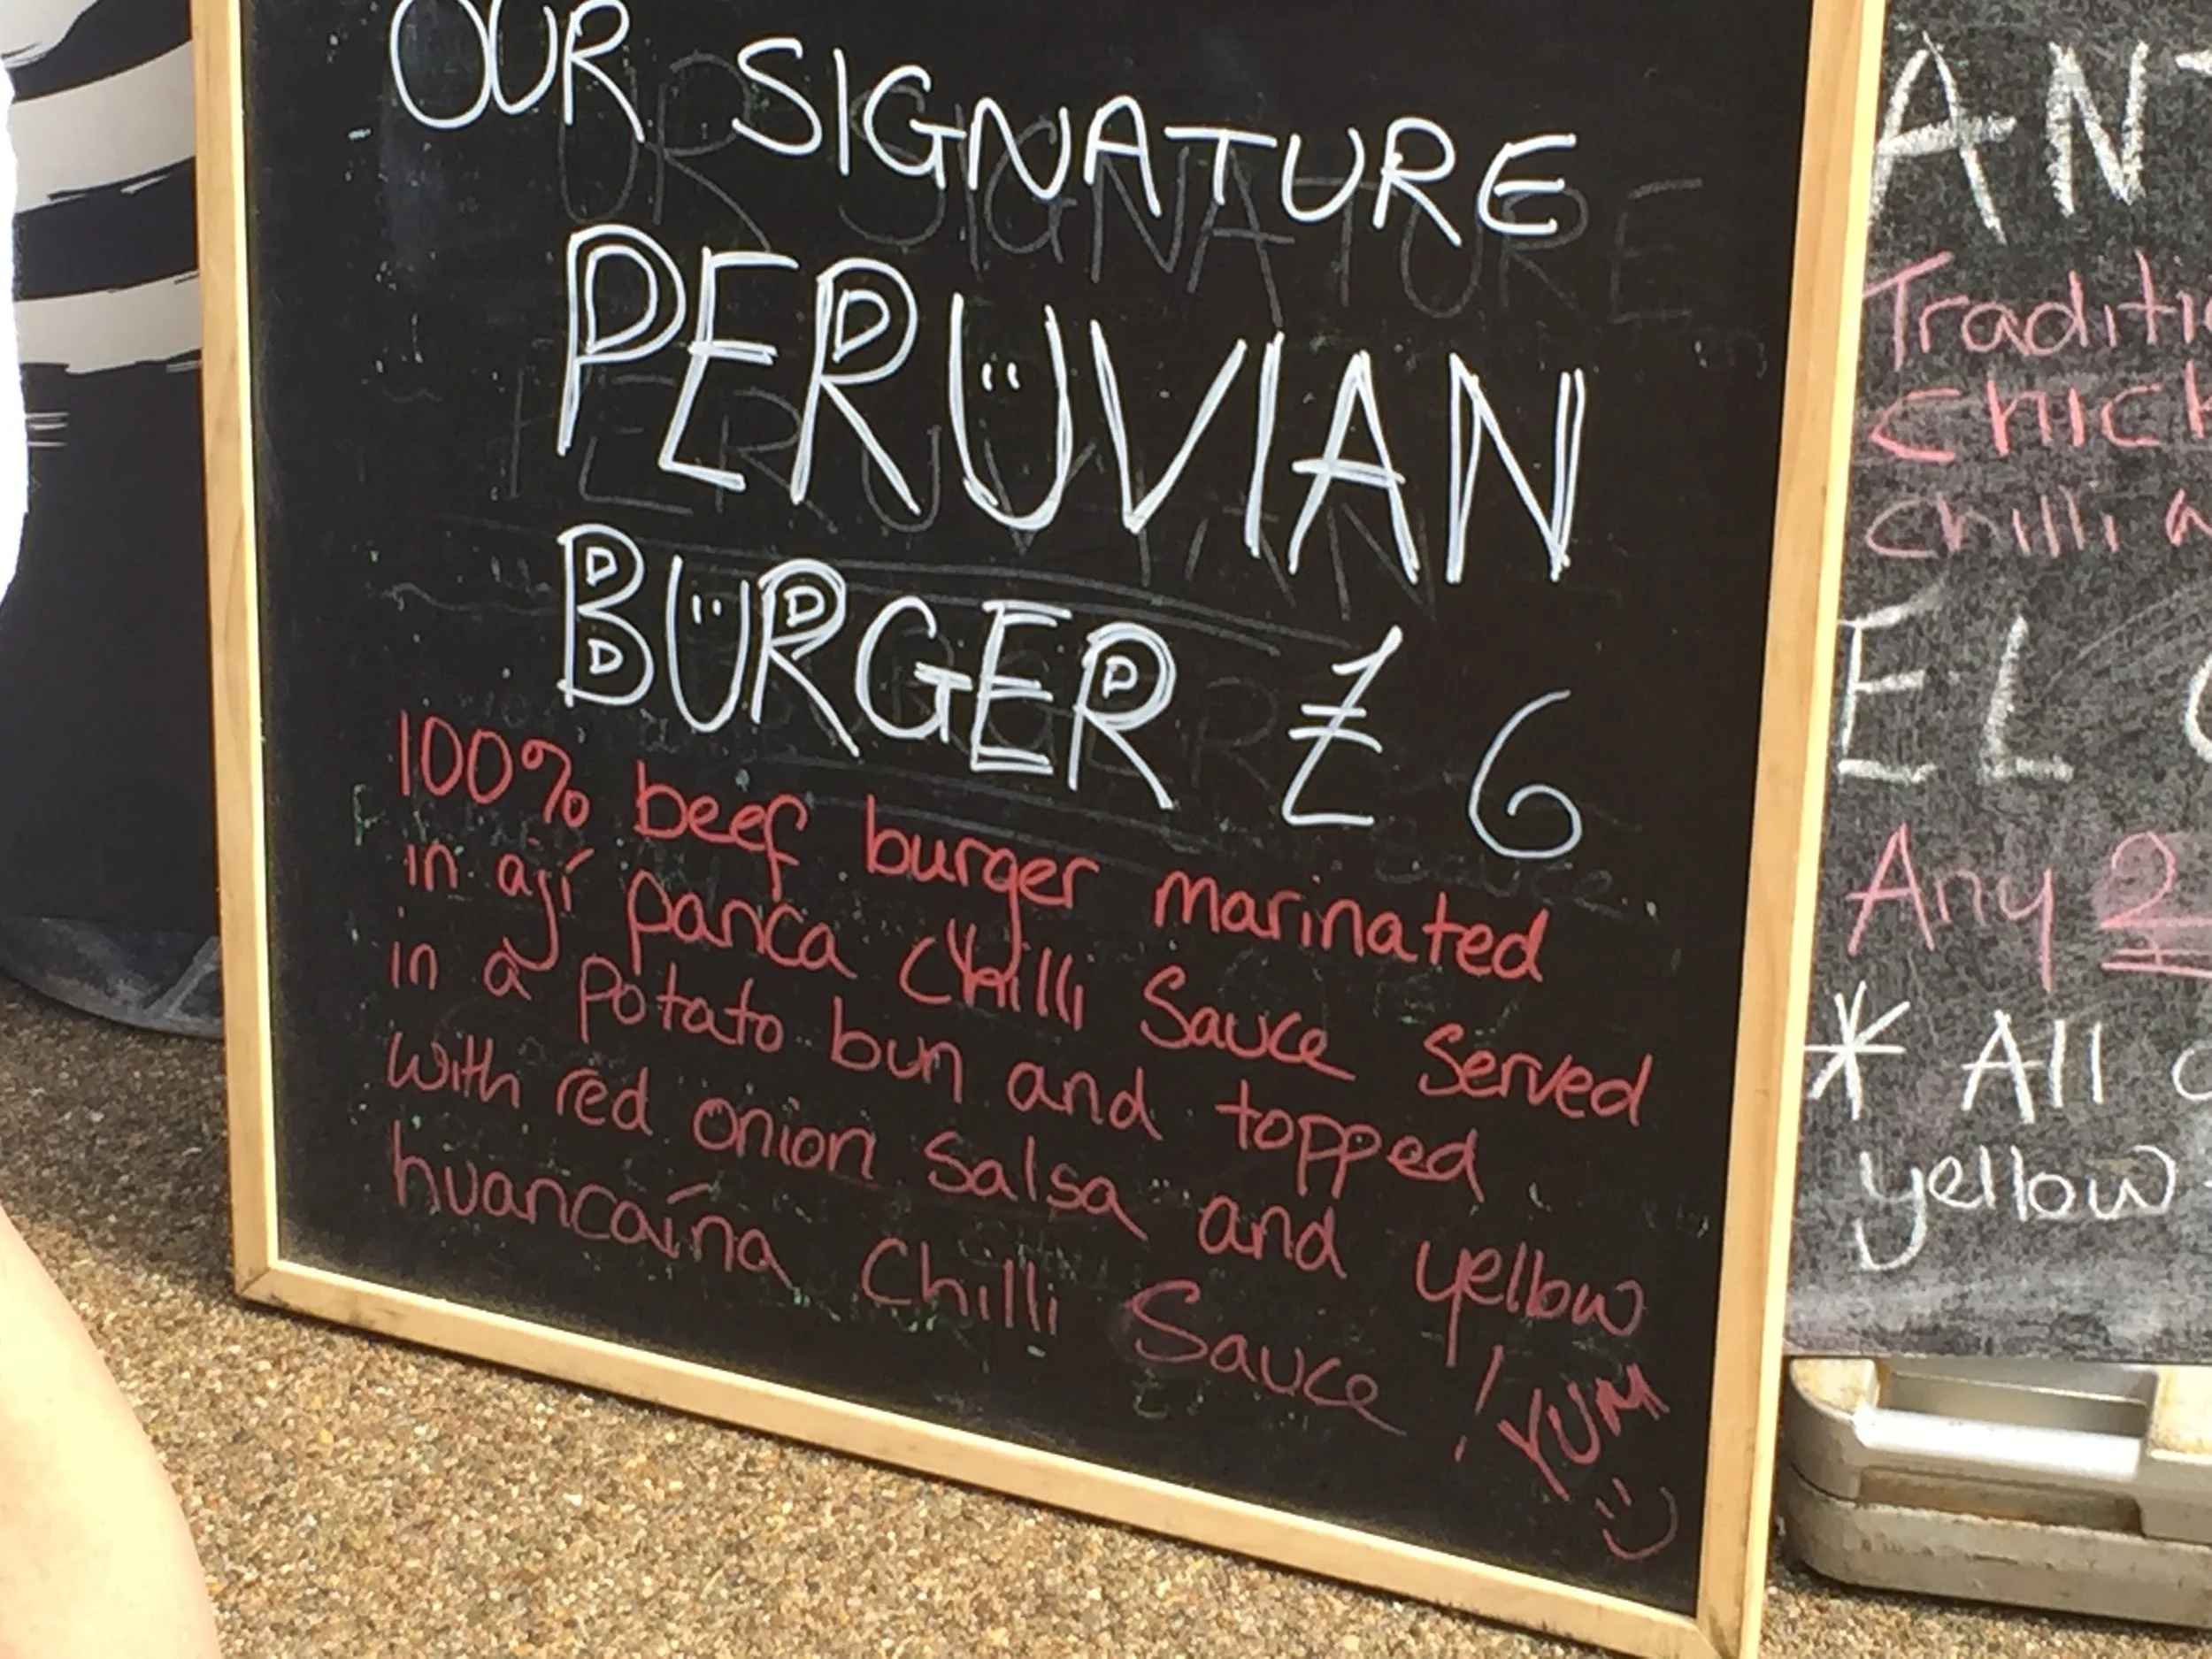 OUR SIGNATURE
PERUVIAN
BURGER £6
100% beef burger marinated
in ají panca Chilli Sauce Served
in a potato bun and topped
with red onion Salsa and yellow
huancaína Chilli Sauce ! YUM
Any 2
* All
yellow
EL
chilli